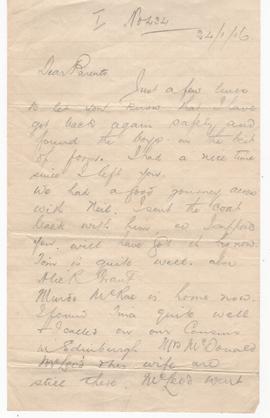 I No 434
24/1/16
Dear Parents
Just a few lines
to let you know that I have
got back again safely and
found the boys in the best
of form. I had a nice time
since I left you.
We had a good journey across
with Neil. I sent the coat
back with him, so I suppose
you will have got it by now.
Tom is quite well. also
Alic R Grant
Murdo McRae is home now.
I found Ina quite well
& I called on our Cousins
in Edinburgh Mrs McDonald
McLeod & his wife are
still there. McLeod went